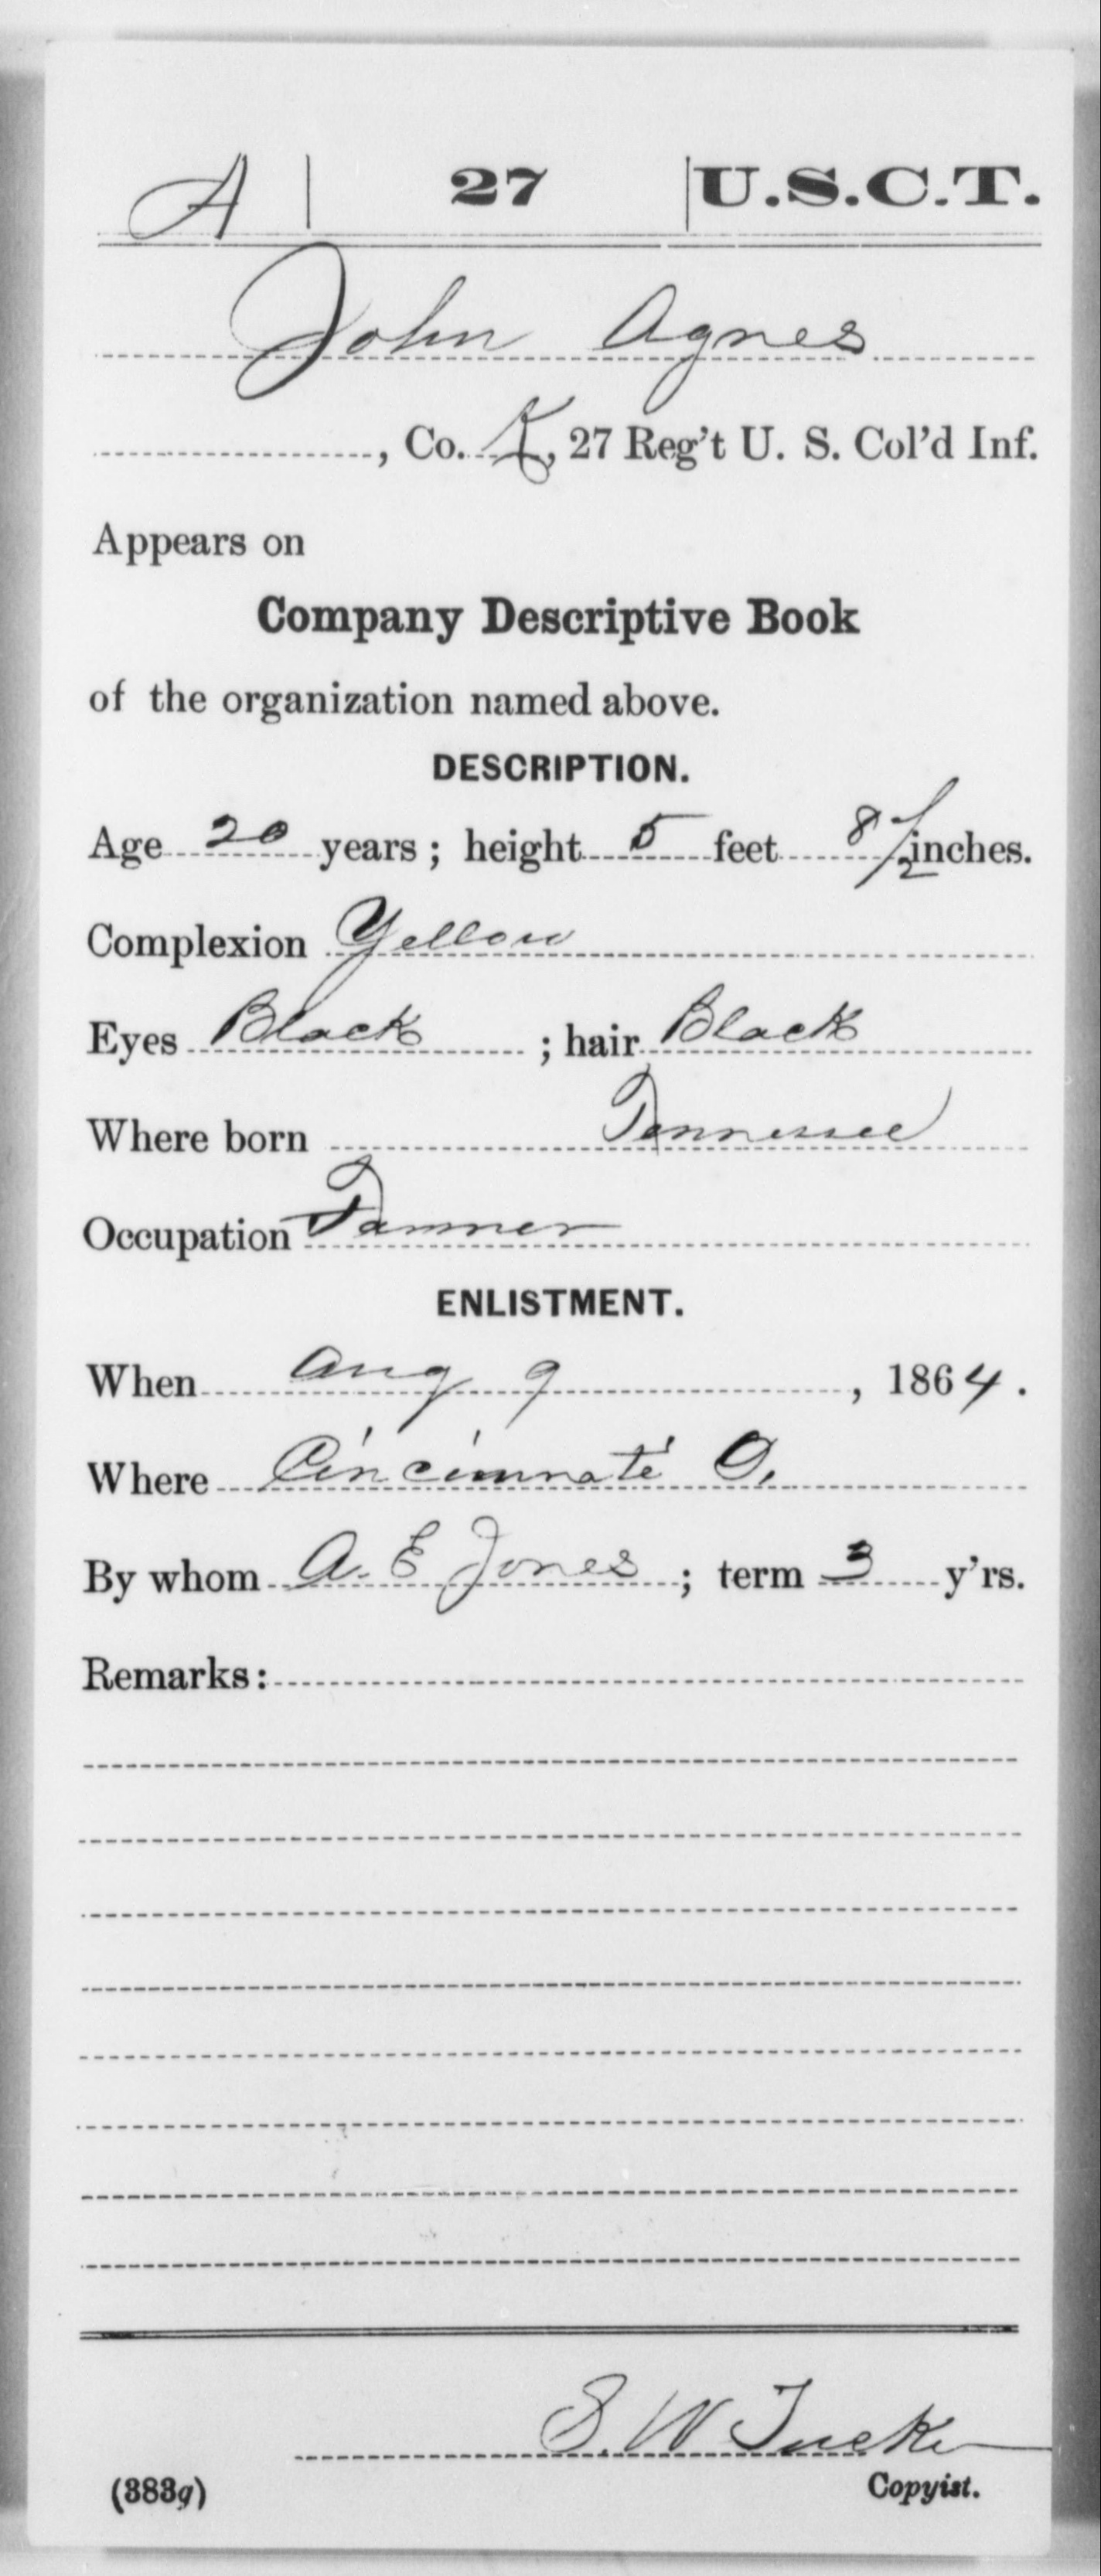 A | 27 | U.S.C.T.
John Agnes
, Co. K, 27 Reg't U. S. Col'd Inf.
Appears on
Company Descriptive Book
of the organization named above.
DESCRIPTION.
Age 20 years; height 5 feet 8 1/2 inches.
Complexion Yellow
Eyes Black ; hair Black
Where born Tennessee
Occupation Tanner
ENLISTMENT.
When Aug 9, 1864.
Where Cincinnati O.
By whom A. E Jones; term 3 y'rs.
Remarks:
S. W Tucker
(383g) Copyist.